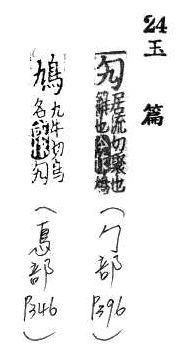 24
玉 篇
勼 居流切聚也
解也今作鳩
（勹部 P396）
鳩 九牛切鳥
名 勼
（鳥部 P346）